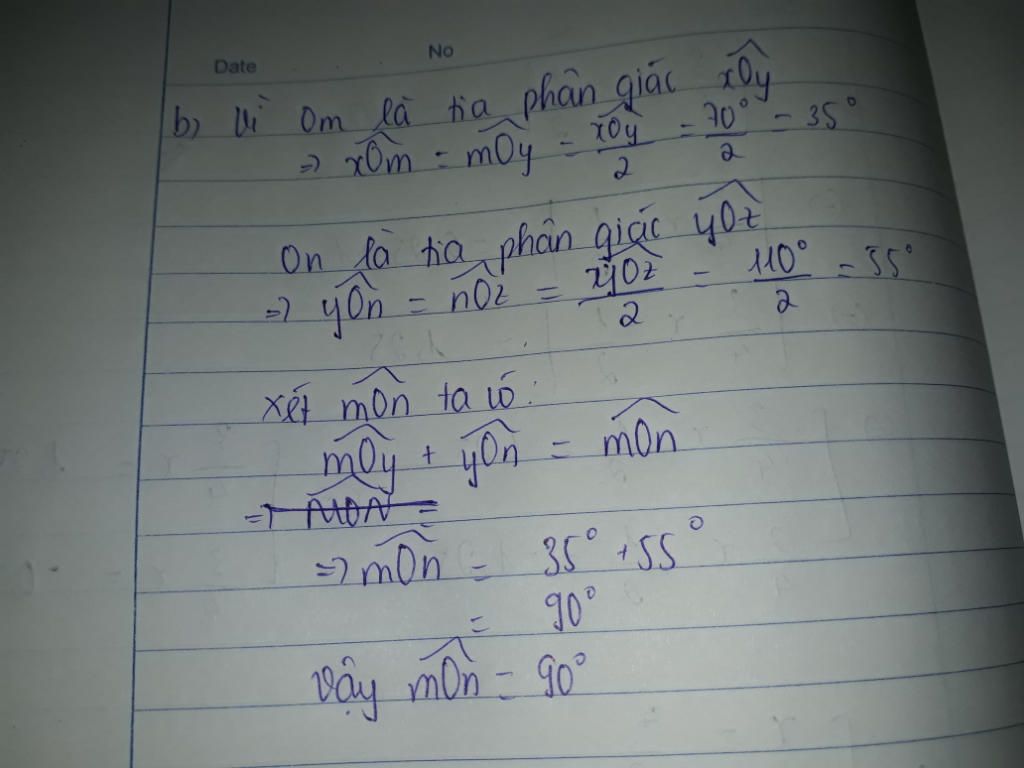 Date No
b) Vì Om là tia phân giác xOy
=> xOm = mOy = xOy/2 = 70°/2 = 35°
On là tia phân giác yOz
=> yOn = nOz = yOz/2 = 110°/2 = 55°
xét mOn ta có:
mOy + yOn = mOn
=> MON =
=> mOn = 35° + 55°
= 90°
Vậy mOn = 90°